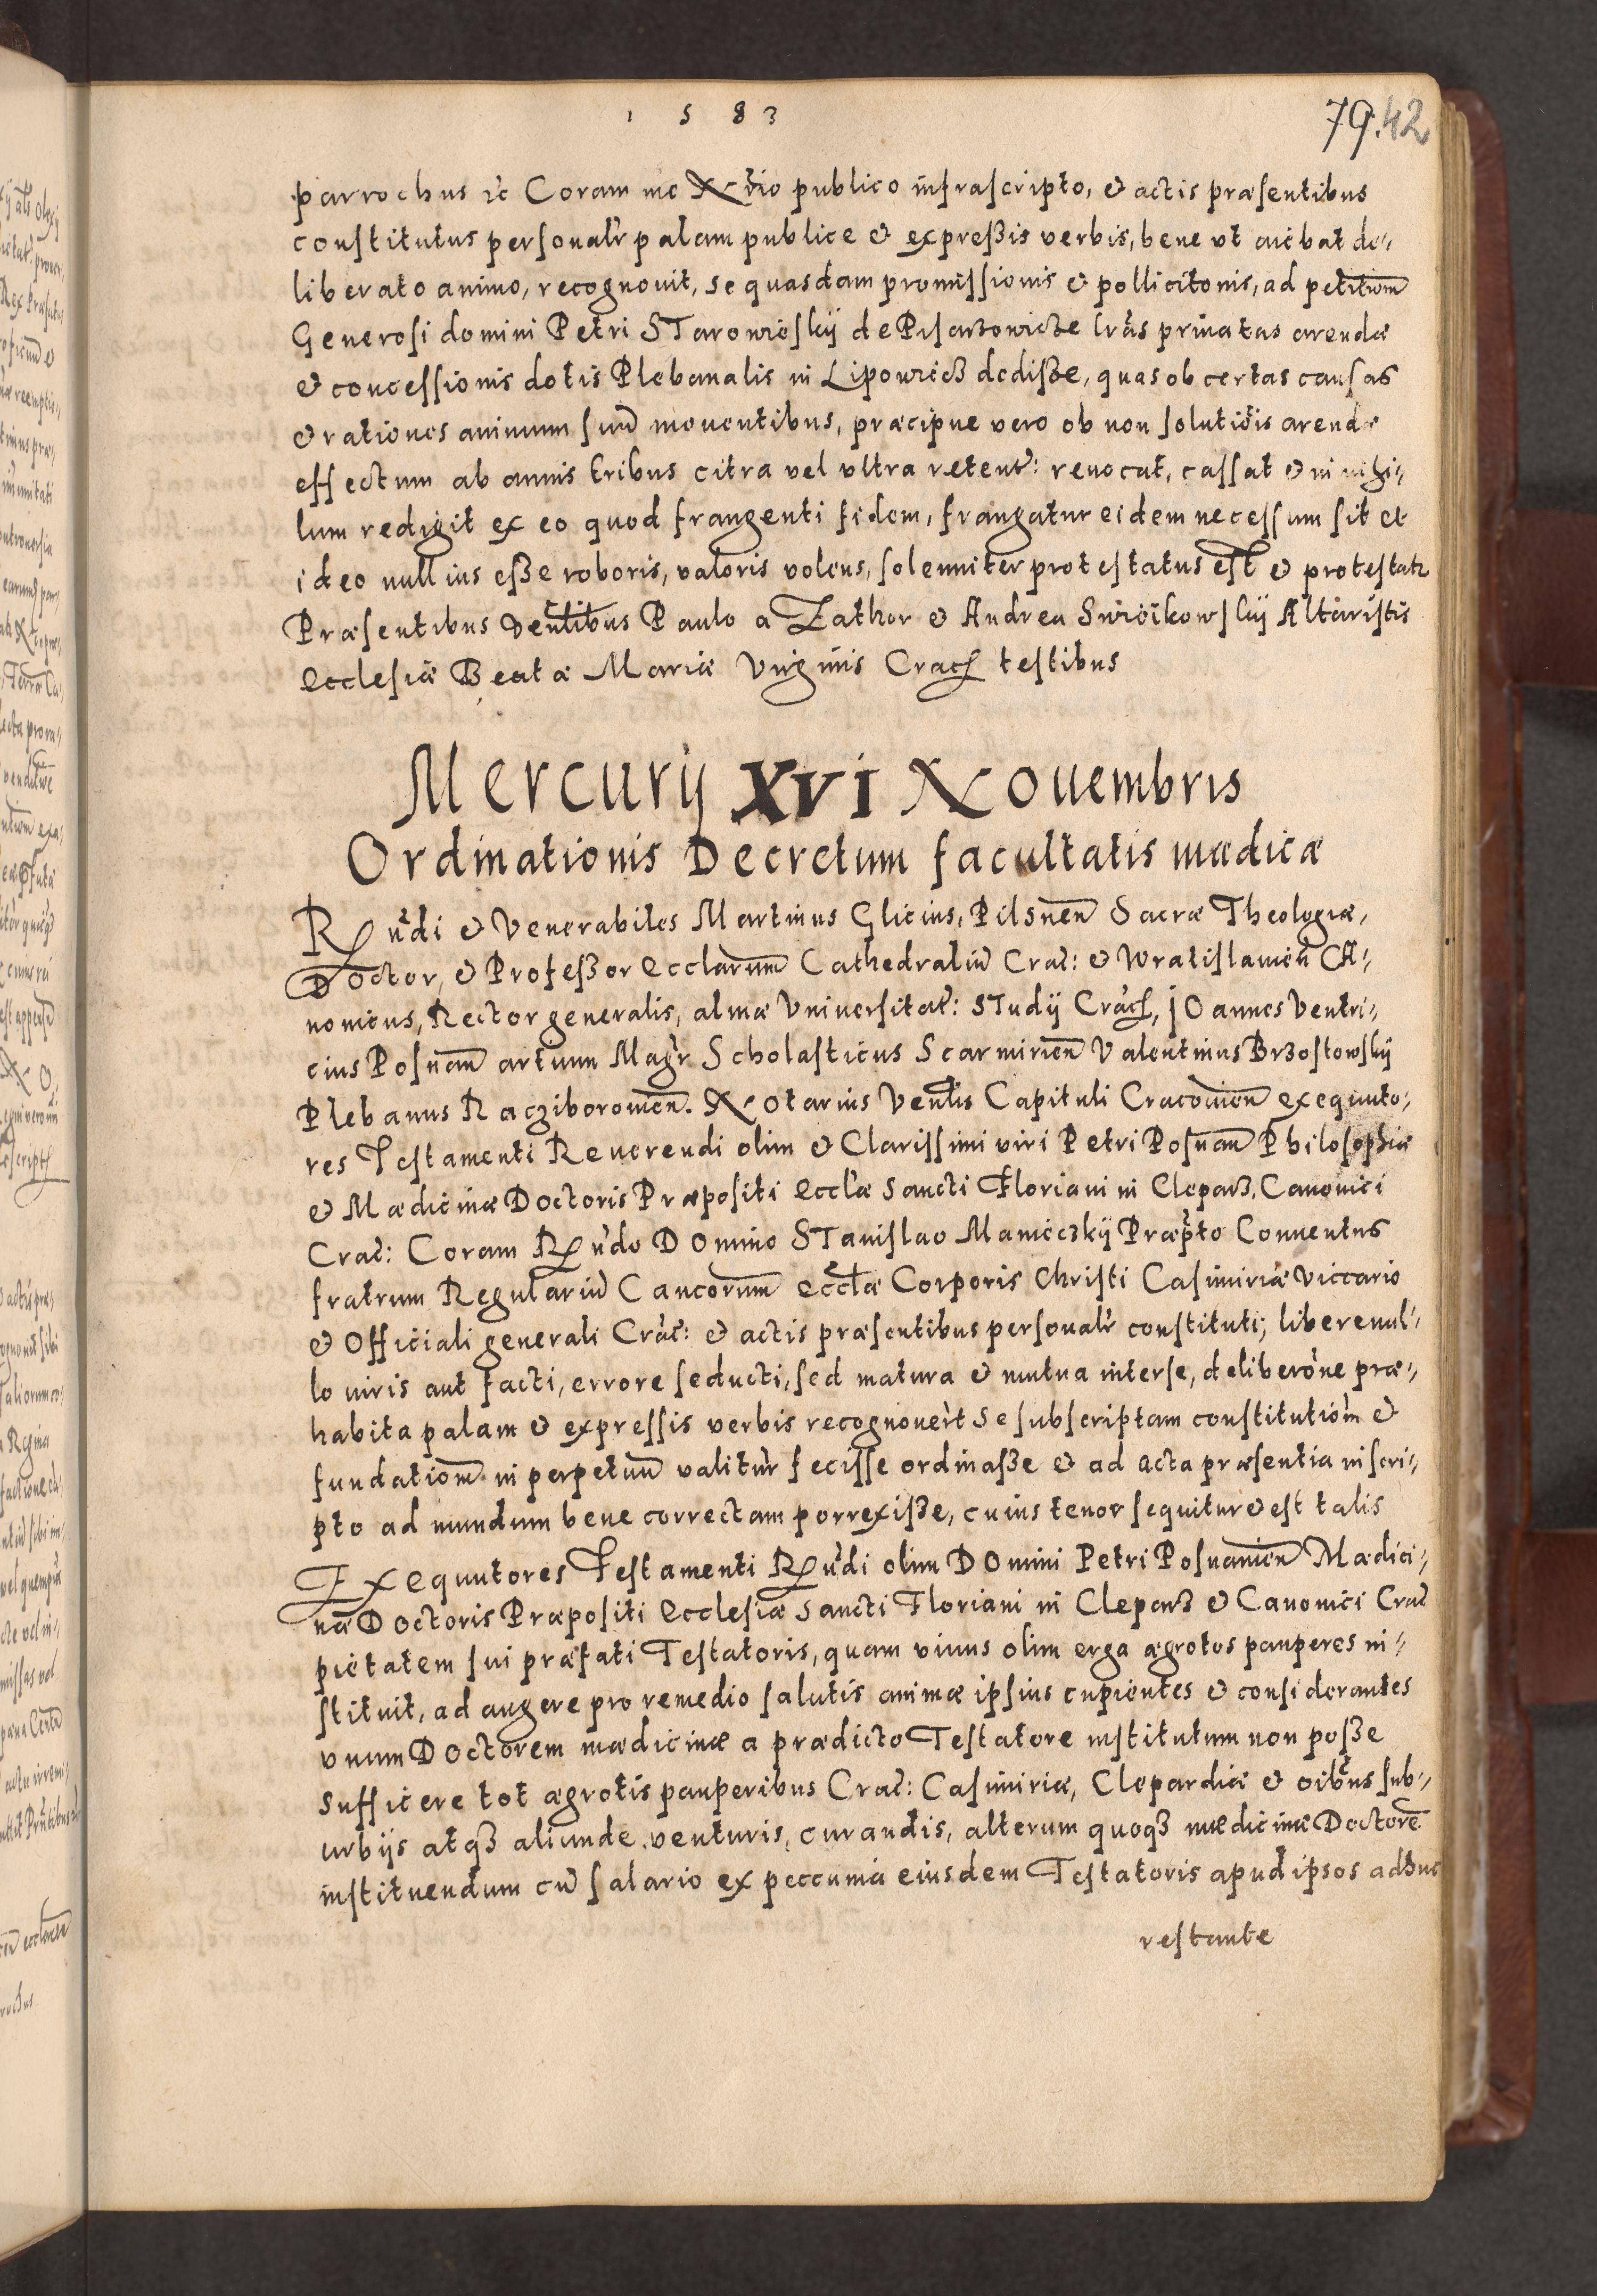 1583
79. 42
parrochus &c Coram me Nřio publico infrascripto, & actis præsentibus
constitutus personalr palam publice & expreßis verbis, bene vt aiebat de-
liberato animo, recognouit, se quasdam promissionis & pollicitonis, ad petitiom
Generosi domini Petri STarowieskij de Pisarzowicze lrãs priuatas arendæ
& concessionis dotis Plebanalis in Lipowiecz dedisse, quas ob certas causas
& rationes animum suũ mouentibus, præcipue vero ob non solutiõis arendæ
effectum ab annis tribus citra vel vltra retent: reuocat, cassat & in nihi-
lum redigit ex eo quod frangenti fidem, frangatur eidem necessum sit et
ideo nullius eße roboris, valoris volens, solenniter protestatus est & protestatr
Præsentibus Ventibus Paulo a Zathor & Andrea Swiecikowskij Altaristis
Ecclesiæ Beatæ Mariæ Virginis Crac testibus
Mercurij XVI Nouembris
Ordinationis Decretum facultatis mædicæ
Rñdi & Venerabiles Martinus Glicius, Pilsneñ Sacræ Theologiæ,
Doctor, & Profeßor Ecclarum Cathedraliũ Crac: & Wratislauieñ CA-
nonicus, Rector generalis, almæ Vniuersitat: STudij Crac, JOannes Ventri-
cius Posnañ artium Magr Scholasticus Scarmirień Valentinus Brzostowskij
Plebanus Racziborouień. Notarius Ventis Capituli Cracouień exequuto-
res Testamenti Reuerendi olim & Clarissimi viri Petri Posnañ Philosophiæ
& Mædicinæ Doctoris Præpositi Ecclæ Sancti Floriani in Cleparz, Canonici
Crac: Coram Rñdo DOmino STanislao Manieczkij Præpto Conuentus
fratrum Regulariũ Cancorum Ecclæ Corporis Christi Casimiriæ Viccario
& Officiali generali Crac: & actis præsentibus personalr constituti; libere nul-
lo iuris aut facti, errore seducti, sed matura & mutua inter se, deliberone præ-
habita palam & expressis verbis recognouert Se subscriptam constitutiom &
fundatiom in perpetuũ valitur fecisse ordinaße & ad acta præsentia in scri-
pto ad mundum bene correctam porrexiße, cuius tenor sequitur & est talis
Exequutores Testamenti Rñdi olim DOmini Petri Posnanień Mædici-
næ Doctoris Præpositi Ecclesiæ Sancti Floriani in Cleparz & Canonici Crac
pietatem sui præfati Testatoris, quam viuus olim erga ægrotos pauperes in-
stituit, ad augere pro remedio salutis animæ ipsius cupientes & considerantes
vnum Doctorem mædicinæ a prædicto Testatore institutum non poße
sufficere tot ægrotis pauperibus Crac: Casimiriæ, Clepardiæ & oibus sub-
urbijs atq3 aliunde venturis, curandis, alterum quoq3 mædicinæ Doctorẽ
instituendum cũ salario ex peccunia eiusdem Testatoris apud ipsos adhuc
restante